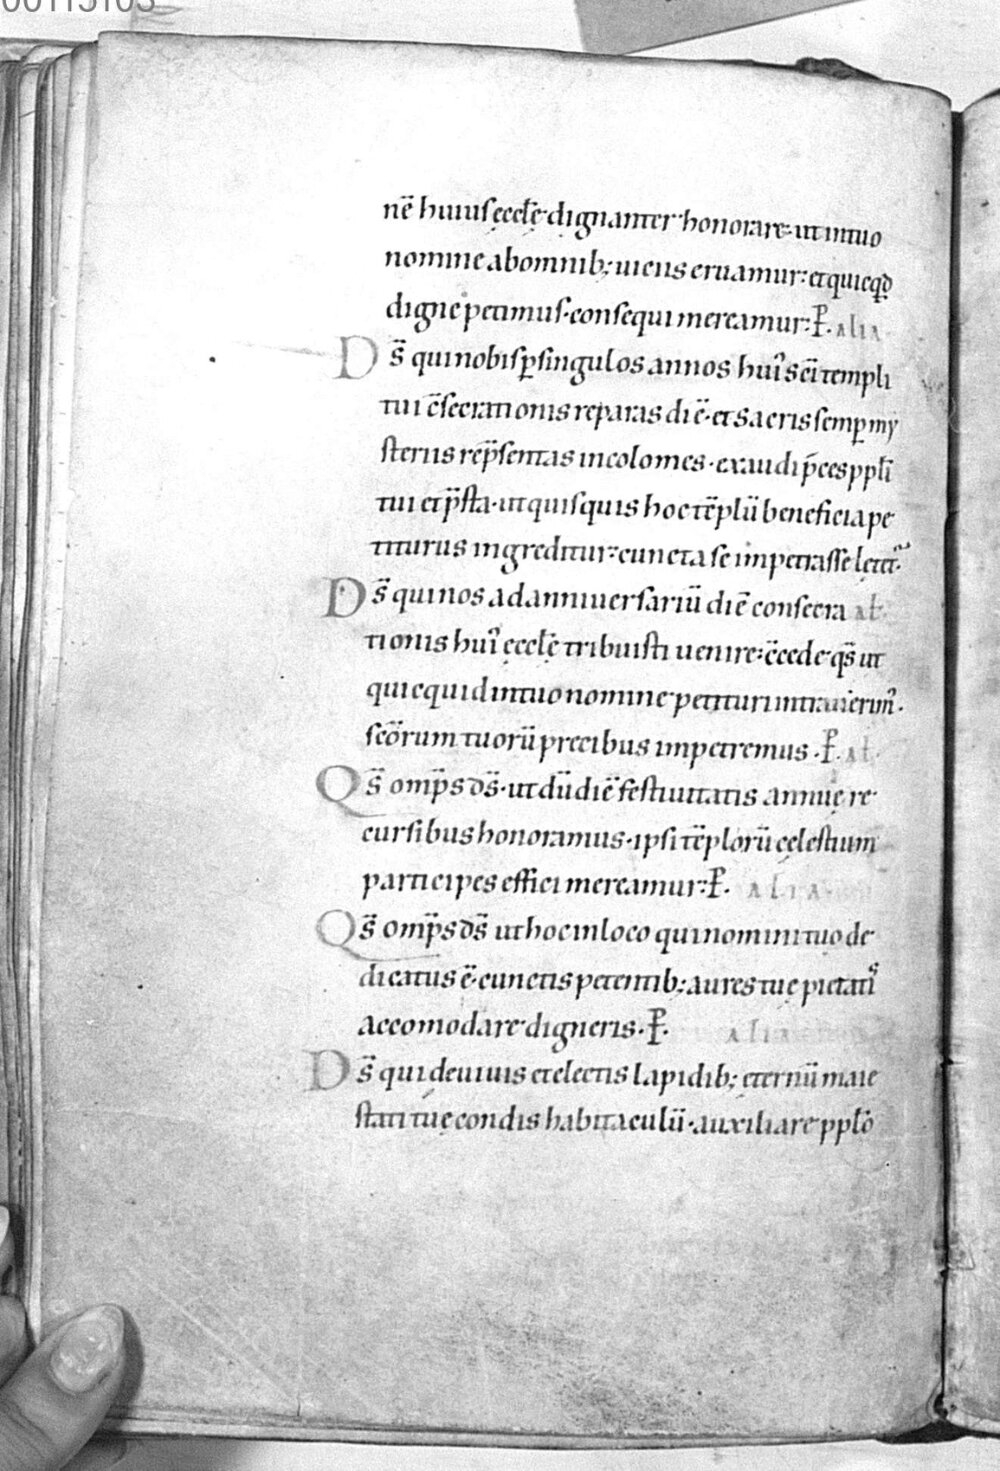 00115103
nē huius ęccłę dignanter honorare· ut in tuo
nomine ab omnib; uiens eruamur· et quicqd
digne petimus· consequi mereamur· P̄. alia·
Ds̄ qui nobis ꝑ singulos annos hui' sc̄i templi
tui c̄secrationis reparas diē· et sacris semꝑ my
steriis rep̄sentas incolomes· exaudi p̄ces pplī
tui et p̄sta· ut quisquis hoc tēplū beneficia pe
titurus ingreditur· cuncta se impetrasse lętet̃·
Ds̄ qui nos ad anniuersariū diē consecra ał·
tionis hui' ęccłę tribuisti uenire· c̄cede qs̄ ut
quicquid in tuo nomine petituri intrauerim'·
sc̄orum tuorū precibus impetremus· P̄. ał·
Qs̄ omp̄s ds̄· ut dū diē festiuitatis annuę re
cursibus honoramus· ipsi tēplorū cęlestium
participes effici mereamur· P̄. alia·
Qs̄ omp̄s ds̄ ut hoc in loco qui nomini tuo de
dicatus ē· cunctis petentib; aures tuę pietatis
accomodare digneris· P̄. alia
Ds̄ qui de uiuis et electis lapidib; ęternū maie
stati tuę condis habitaculū· auxiliare pplo